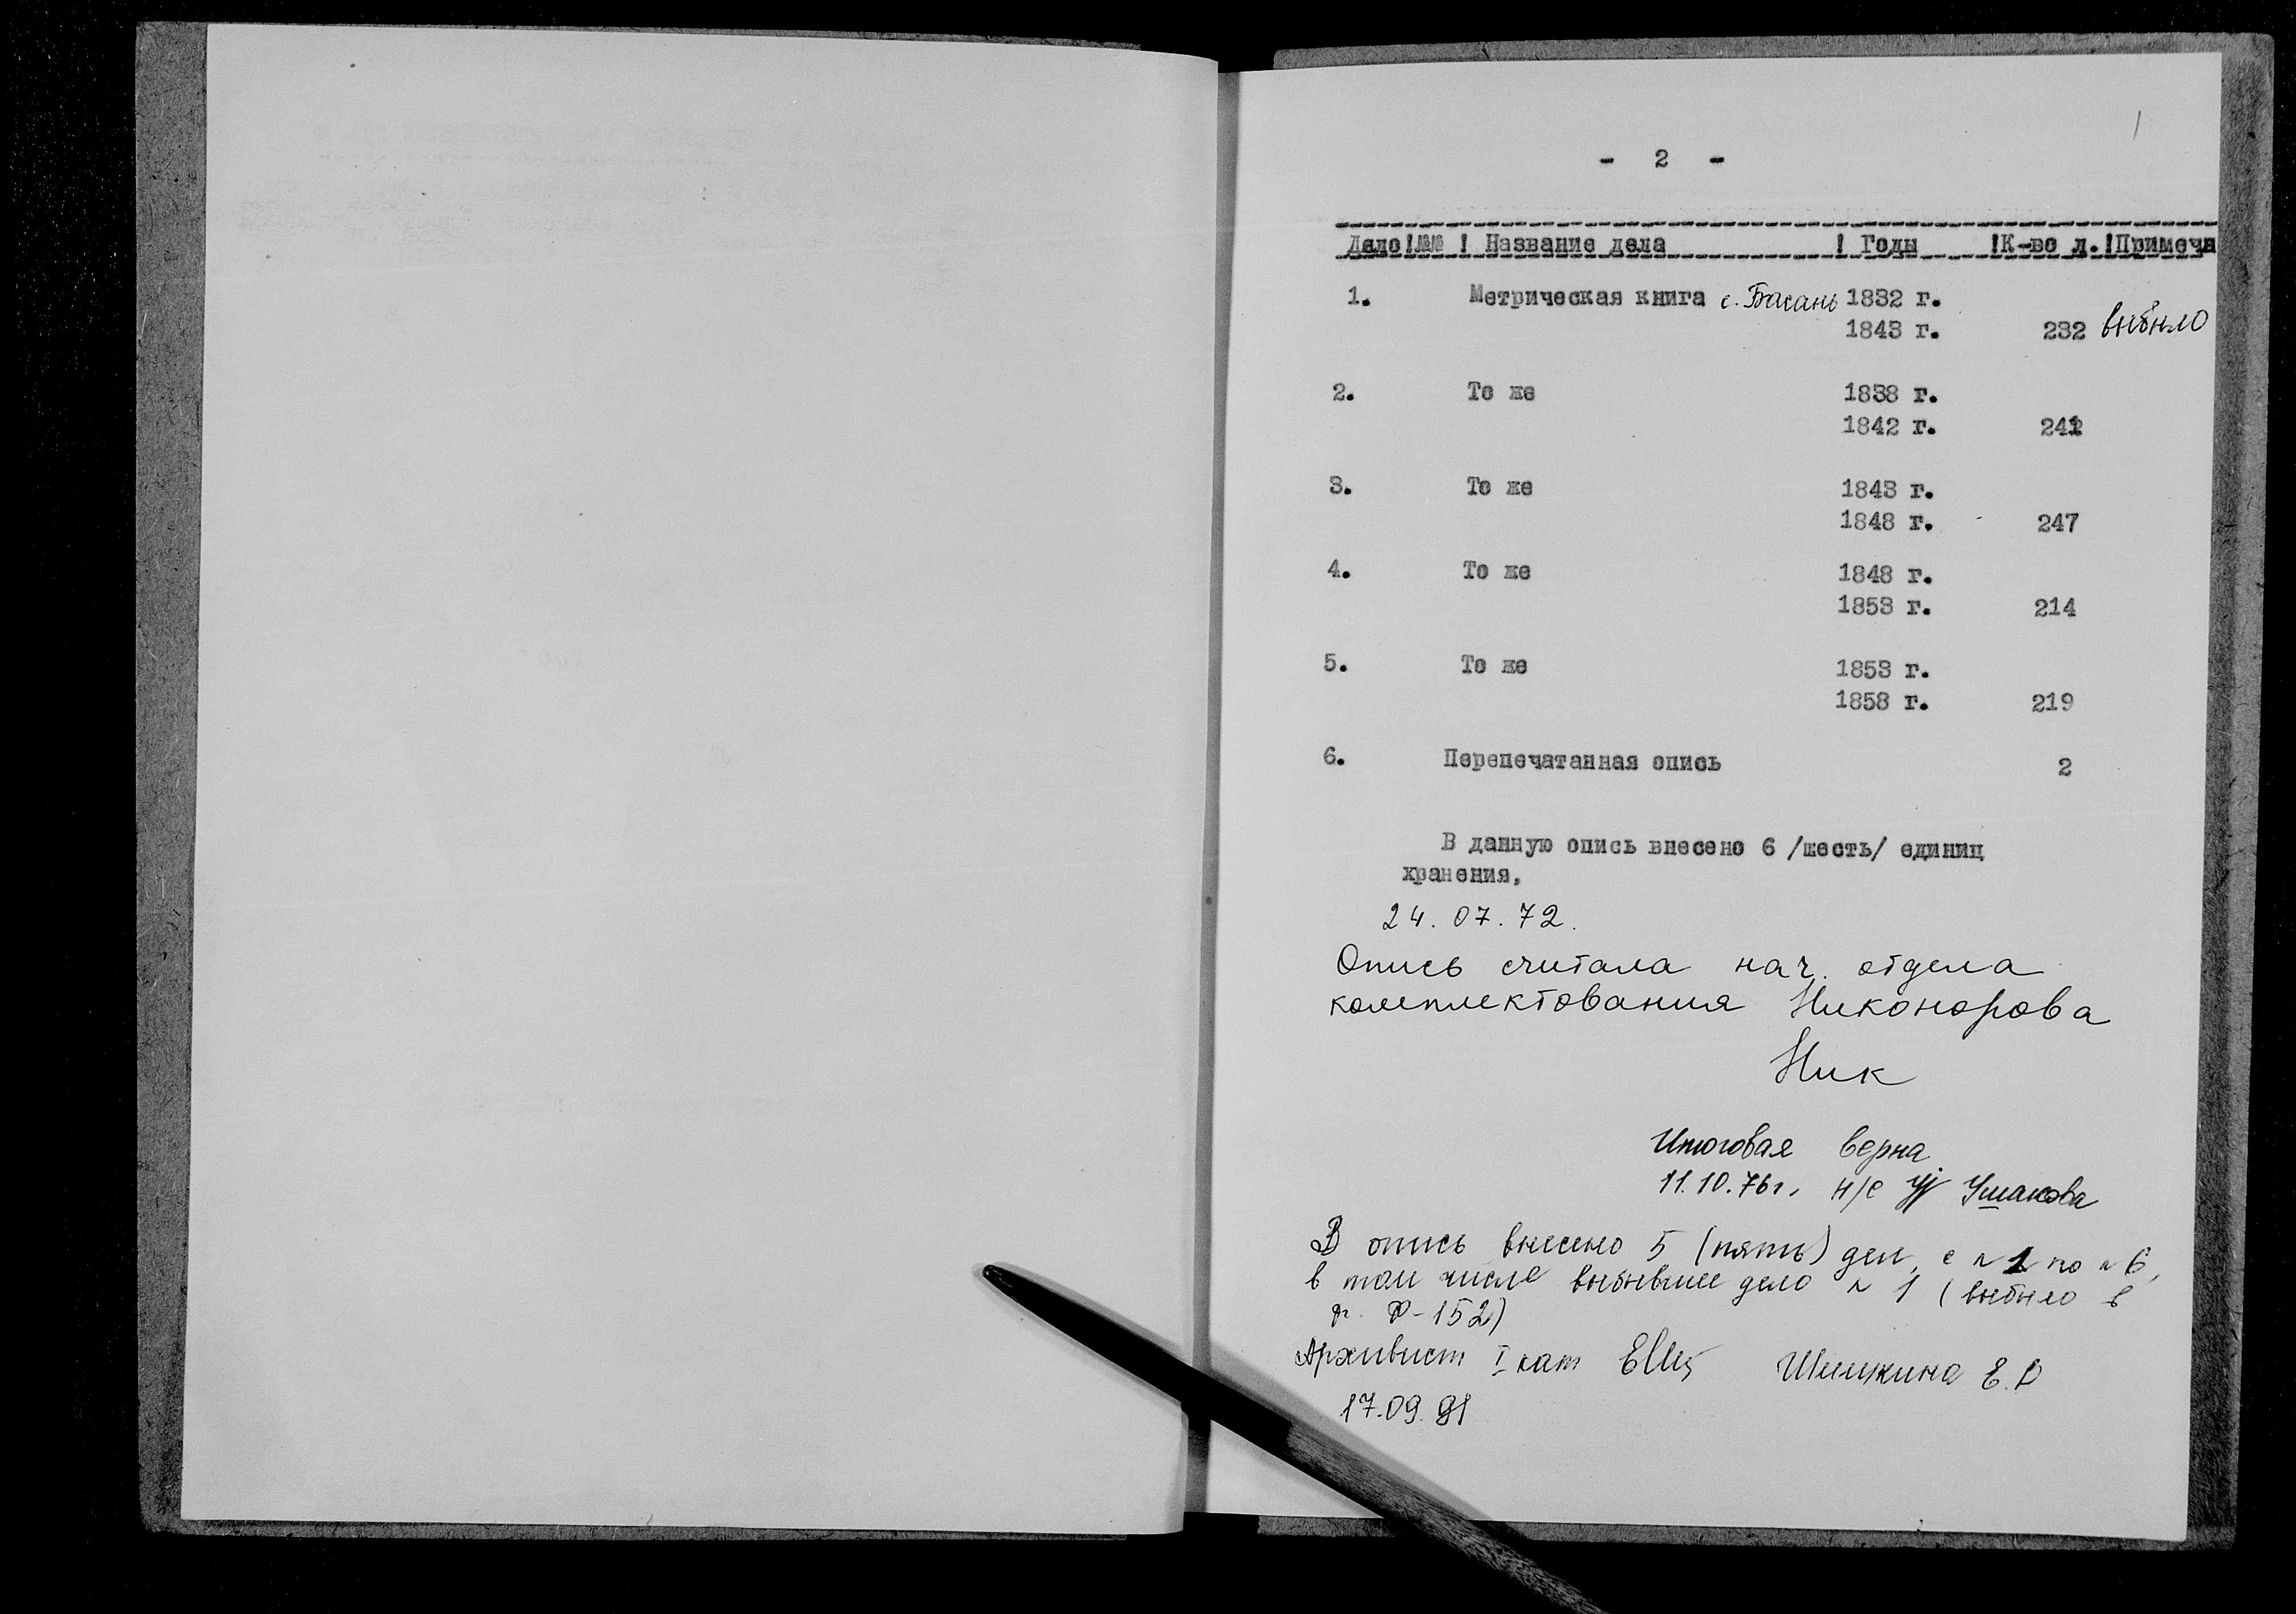 1
- 2 -
Дело!№№ ! Название дела ! Годы !К-во л.!Примеча
1. Метрическая книга с. Басань 1832 г.
1843 г. 232 выбыло
2. То же 1838 г.
1842 г. 242
3. То же 1843 г.
1848 г. 247
4. То же 1848 г.
1853 г. 214
5. То же 1853 г.
1858 г. 219
6. Перепечатанная опись 2
В данную опись внесено 6 /шесть/ единиц
хранения.
24.07.72.
Опись считала нач. отдела
комплектования Никонорова
Ник
Итоговая верна
11.10.76г. н/с Ушакова
В опись внесено 5 (пять) дел, с № 1 по № 6,
в том числе выбывшее дело № 1 (выбыло в
ф. Ф-152)
Архивист I кат Шишкина Е.
17.09.91